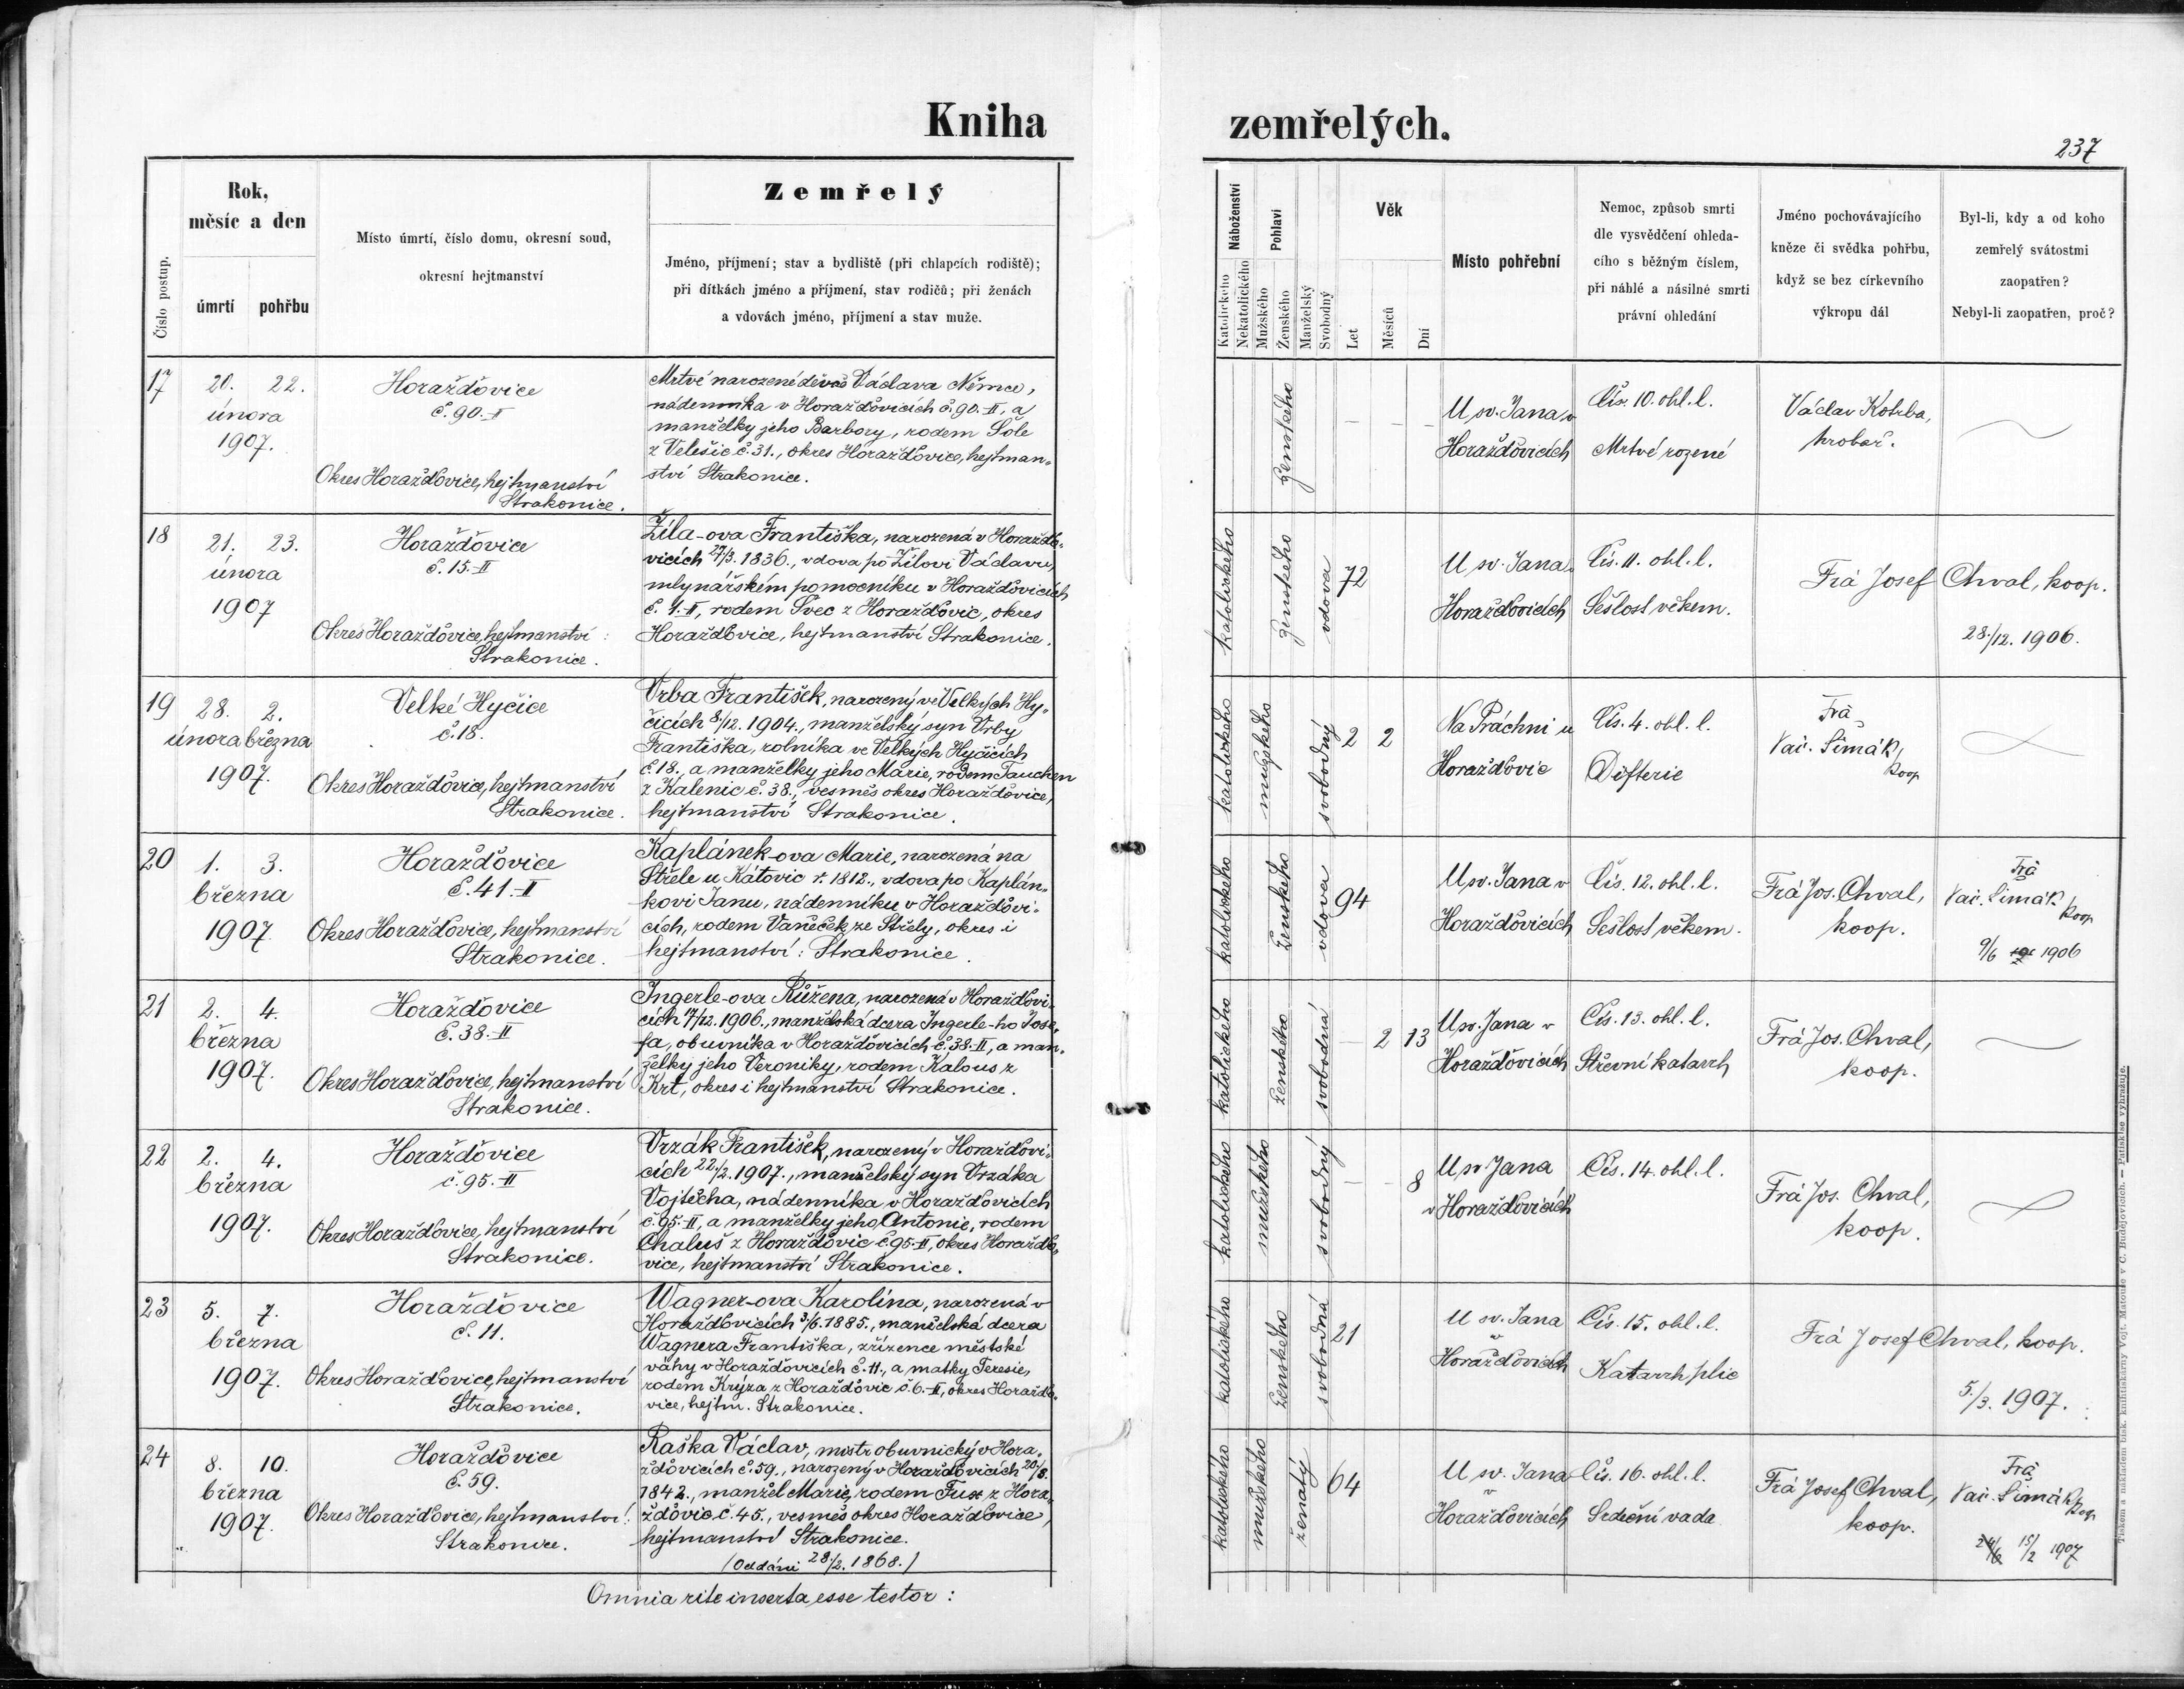 Kniha
zemřelých.
237
Číslo postup.
Rok,
měsíc a den
úmrtí
pohřbu
Místo úmrtí, číslo domu, okresní soud,
okresní hejtmanství
Zemřelý
Jméno, příjmení; stav a bydliště (při chlapcích rodiště);
při dítkách jméno a příjmení, stav rodičů; při ženách
a vdovách jméno, příjmení a stav muže.
Náboženství
Katolického
Nekatolického
Pohlaví
Mužského
Ženského
Manželský
Svobodný
Věk
Let
Měsíců
Dní
Místo pohřební
Nemoc, způsob smrti
dle vysvědčení ohleda-
cího s běžným číslem,
při náhlé a násilné smrti
právní ohledání
Jméno pochovávajícího
kněze či svědka pohřbu,
když se bez církevního
výkropu dál
Byl-li, kdy a od koho
zemřelý svátostmi
zaopatřen?
Nebyl-li zaopatřen, proč?
17
20. 22.
února
1907.
Horažďovice
č. 90.-II
Okres Horažďovice, hejtmanství
Strakonice.
Mrtvě narozené děvče Václava Němce,
nádenníka v Horažďovicích č. 90.-II, a
manželky jeho Barbory, rodem Šole
z Velešic č. 31., okres Horažďovice, hejtman-
ství Strakonice.
ženského
U sv. Jana v
Horažďovicích
Čís. 10. ohl. l.
Mrtvě rozené
Václav Kotrba,
hrobař.
18
21. 23.
února
1907
Horažďovice
č. 15.-II
Okres Horažďovice, hejtmanství
Strakonice.
Žíla-ova Františka, narozená v Horaždo-
vicích 27/3. 1836., vdova po Žílovi Václavu,
mlynářským pomocníku v Horažďovicích
č. 4.-II, rodem Švec z Horažďovic, okres
Horažďovice, hejtmanství Strakonice.
katolického
ženského
vdova
72
U sv. Jana v
Horažďovicích
Čís. 11. ohl. l.
Sešlost věkem.
Frá Josef Chval, koop.
28./12. 1906.
19
28. 2.
února března
1907.
Velké Hyčice
č. 18.
Okres Horažďovice, hejtmanství
Strakonice.
Vrba František, narozený ve Velkých Hy-
čicích 8/12. 1904., manželský syn Vrby
Františka, rolníka ve Velkých Hyčicích
č. 18., a manželky jeho Marie, rodem Tauchen
z Kalenic č. 38., vesměs okres Horažďovice,
hejtmanství Strakonice.
katolického
mužského
svobodný
2 2
Na Práchni u
Horažďovic
Čís. 4. ohl. l.
Difterie
Frá
Vác. Šimák,
koop
20
1. 3.
března
1907
Horažďovice
č. 41.-II
Okres Horažďovice, hejtmanství
Strakonice.
Kaplánek-ova Marie, narozená na
Střele u Kátovic r. 1812., vdova po Kaplán-
kovi Janu, nádenníku v Horažďovi-
cích, rodem Vaněček ze Střely, okres i
hejtmanství: Strakonice.
katolického
ženského
vdova
94
U sv. Jana v
Horažďovicích
Čís. 12. ohl. l.
Sešlost věkem.
Frá Jos. Chval,
koop.
Frá
Vác. Šimák
koop
9/6 1906
21
2. 4.
března
1907.
Horažďovice
č. 38.-II
Okres Horažďovice, hejtmanství
Strakonice.
Ingerle-ova Růžena, narozená v Horažďovi-
cích 17/12. 1906., manželská dcera Ingerle-ho Jose-
fa, obuvníka v Horažďovicích č. 38.-II, a man-
želky jeho Veroniky, rodem Kalous z
Krt, okres i hejtmanství Strakonice.
katolického
ženského
svobodná
2 13
U sv. Jana v
Horažďovicích
Čís. 13. ohl. l.
Střevní katarrh
Frá Jos. Chval,
koop.
22
2. 4.
března
1907.
Horažďovice
č. 95.-II
Okres Horažďovice, hejtmanství
Strakonice.
Vrzák František, narozený v Horažďovi-
cích 22/2. 1907., manželský syn Vrzáka
Vojtěcha, nádenníka v Horažďovicích
č. 95.-II, a manželky jeho Antonie, rodem
Chaluš z Horažďovic č. 95-II, okres Horaždo-
vice, hejtmanství Strakonice.
katolického
mužského
svobodný
8
U sv. Jana
v Horažďovicích
Čís. 14. ohl. l.
Frá Jos. Chval,
koop.
23
5. 7.
března
1907.
Horažďovice
č. 11.
Okres Horažďovice, hejtmanství
Strakonice.
Wagner-ova Karolina, narozená v
Horažďovicích 3/6. 1885., manželská dcera
Wagnera Františka, zřízence městské
váhy v Horažďovicích č. 11., a matky Teresie,
rodem Krýza z Horažďovic č. 6.-II, okres Horaždo-
vice, hejtm. Strakonice.
katolického
ženského
svobodná
21
U sv. Jana
v
Horažďovicích
Čís. 15. ohl. l.
Katarrh plic
Frá Josef Chval, koop.
5./3. 1907.
24
8. 10.
března
1907.
Horažďovice
č. 59.
Okres Horažďovice, hejtmanství:
Strakonice.
Raška Václav, mistr obuvnický v Hora-
žďovicích č. 59., narozený v Horažďovicích 20/8.
1842., manžel Marie, rodem Fux z Hora-
žďovic č. 45., vesměs okres Horažďovice,
hejtmanství Strakonice.
(Oddáni 28/2. 1868.)
katolického
mužského
ženatý
64
U sv. Jana
v
Horažďovicích
Čís. 16. ohl. l.
Srdeční vada
Frá Josef Chval,
koop.
Frá
Vác. Šimák
koop
15/2 1907
Omnia rite inserta esse testor:
Tiskem a nákladem tisk. knihtiskárny Vojt. Matouše v Č. Budějovicích. — Patisk se vyhražuje.